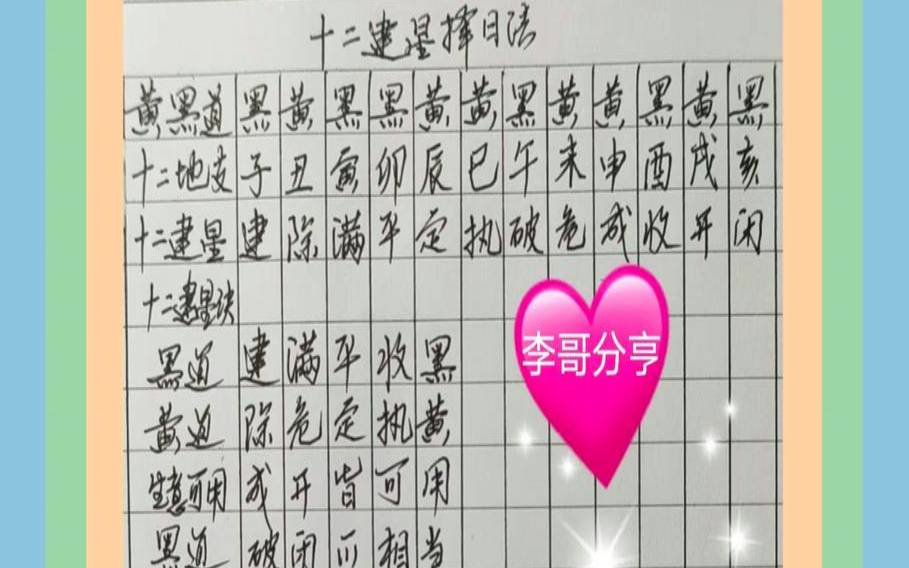 十二建星择日法
黄黑道 黑 黄 黑 黑 黄 黄 黑 黄 黄 黑 黄 黑
十二地支 子 丑 寅 卯 辰 巳 午 未 申 酉 戌 亥
十二建星 建 除 满 平 定 执 破 危 成 收 开 闭
十二建星诀
黑道 建 满 平 收 黑
黄道 除 危 定 执 黄
生意可用 成 开 皆 可 用
黑道 破 闭 不 相 当
李哥分享